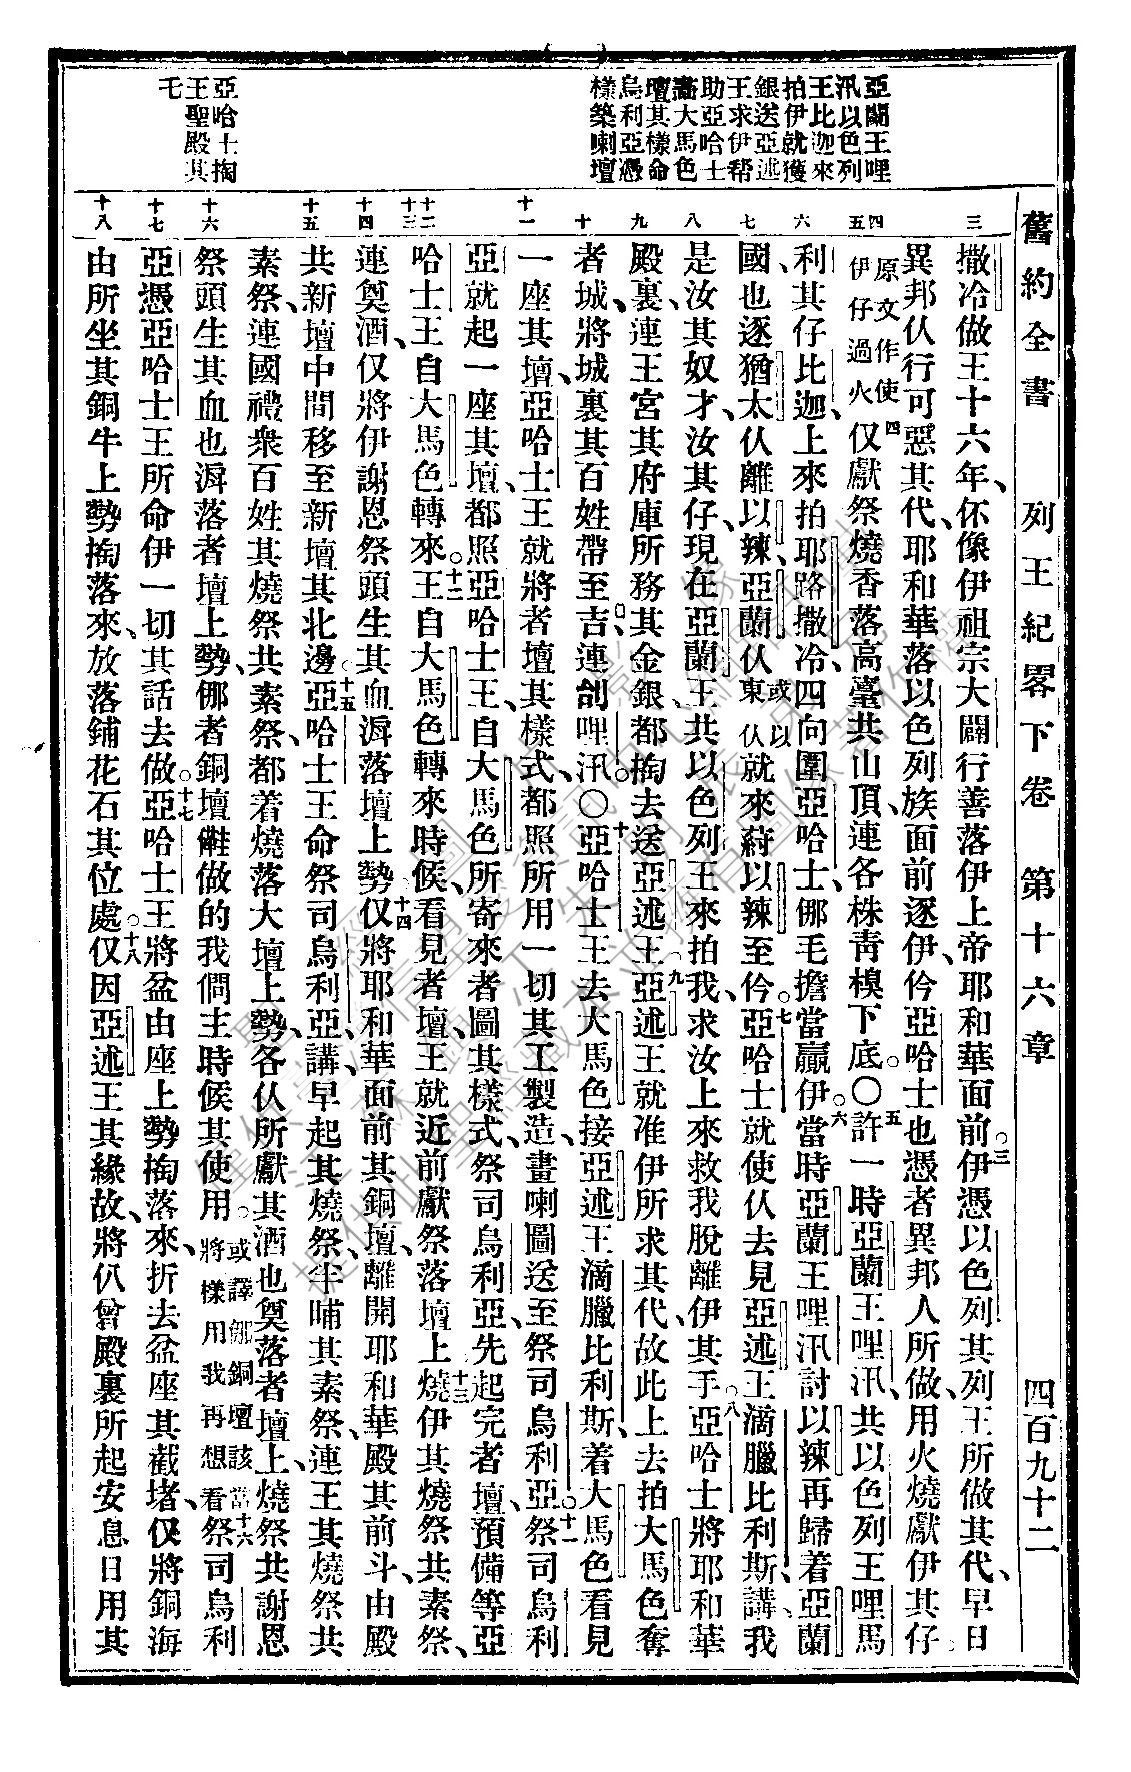 舊約全書　列王紀畧下卷　第十六章　四百九十二
亞蘭王哩
汛以色列
王比迦來
拍伊就獲
銀送亞述
王求伊帮
助亞哈士
畵大馬色
壇其樣命
烏利亞憑
樣築喇壇
亞哈士掏
王聖殿其
毛
三
四
五
六
七
八
九
十
十一
十二
十三
十四
十五
十六
十七
十八
撒冷做王十六年、伓像伊祖宗大闢行善落伊上帝、耶和華面前。三伊憑以色列其列王所做其代、早日
異邦仈行可惡其代、耶和華落以色列族面前逐伊仱亞哈士也憑者異邦人所做、用火燒獻伊其仔
原文作使
伊仔過火
四仅獻祭燒香落高臺共山頂、連各株靑模下底。〇五許一時亞蘭王哩汛、共以色列王哩馬
利其仔比迦、上來拍耶路撒冷四向圍亞哈士、㑚毛擔當贏伊。六當時亞蘭王哩汛討以辣再歸着亞蘭
國、也逐猶太仈離以辣、亞蘭仈
或以
東仈
就來蒞以辣至仱。七亞哈士就使仈去見亞述王滴臘比利斯、講、我
是汝其奴才、汝其仔、現在亞蘭王共以色列王來拍我、求汝上來救我脫離伊其手。八亞哈士將耶和華
殿裏、連王宮其府庫所務其金銀、都掏去送亞述王。九亞述王就准伊所求其代、故此上去拍大馬色奪
者城、將城裏其百姓帶至吉、連刣哩汛。〇十亞哈士王去大馬色接亞述王滴臘比利斯、着大馬色看見
一座其壇、亞哈士王就將者壇其樣式、都照所用一切其工製造、畫喇圖送至祭司烏利亞。十一祭司烏利
亞就起一座其壇、都照亞哈士王、自大馬色所寄來者圖其樣式、祭司烏利亞、先起完者壇、預備等亞
哈士王自大馬色轉來。十二王自大馬色轉來時候、看見者壇、王就近前獻祭落壇上十三燒伊其燒祭共素祭、
連奠酒、仅將伊謝恩祭頭生其血㵃落壇上勢。十四仅將耶和華面前其銅壇、離開耶和華殿其前斗、由殿
共新壇中間移至新壇其北邊。十五亞哈士王命祭司烏利亞、講、早起其燒祭、半晡其素祭、連王其燒祭共
素祭、連國禮衆百姓其燒祭共素祭、都着燒落大壇上勢、各仈所獻其酒也奠落者壇上、燒祭共謝恩
祭頭生其血也㵃落者壇上勢、㑚者銅壇㑚做的我倜主時候其使用。
或譯㑚銅壇該當
將樣用我再想看
十六祭司烏利
亞憑亞哈士王所命伊一切其話去做。十七亞哈士王將盆由座上勢掏落來、折去盆座其截堵、仅將銅海
由所坐其銅牛上勢掏落來、放落鋪花石其位處。十八仅因亞述王其緣故、將仈曾殿裏所起安息日用其